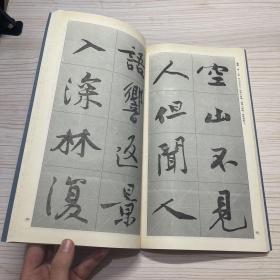 空山不見
人但聞人
語響返景
入深林復